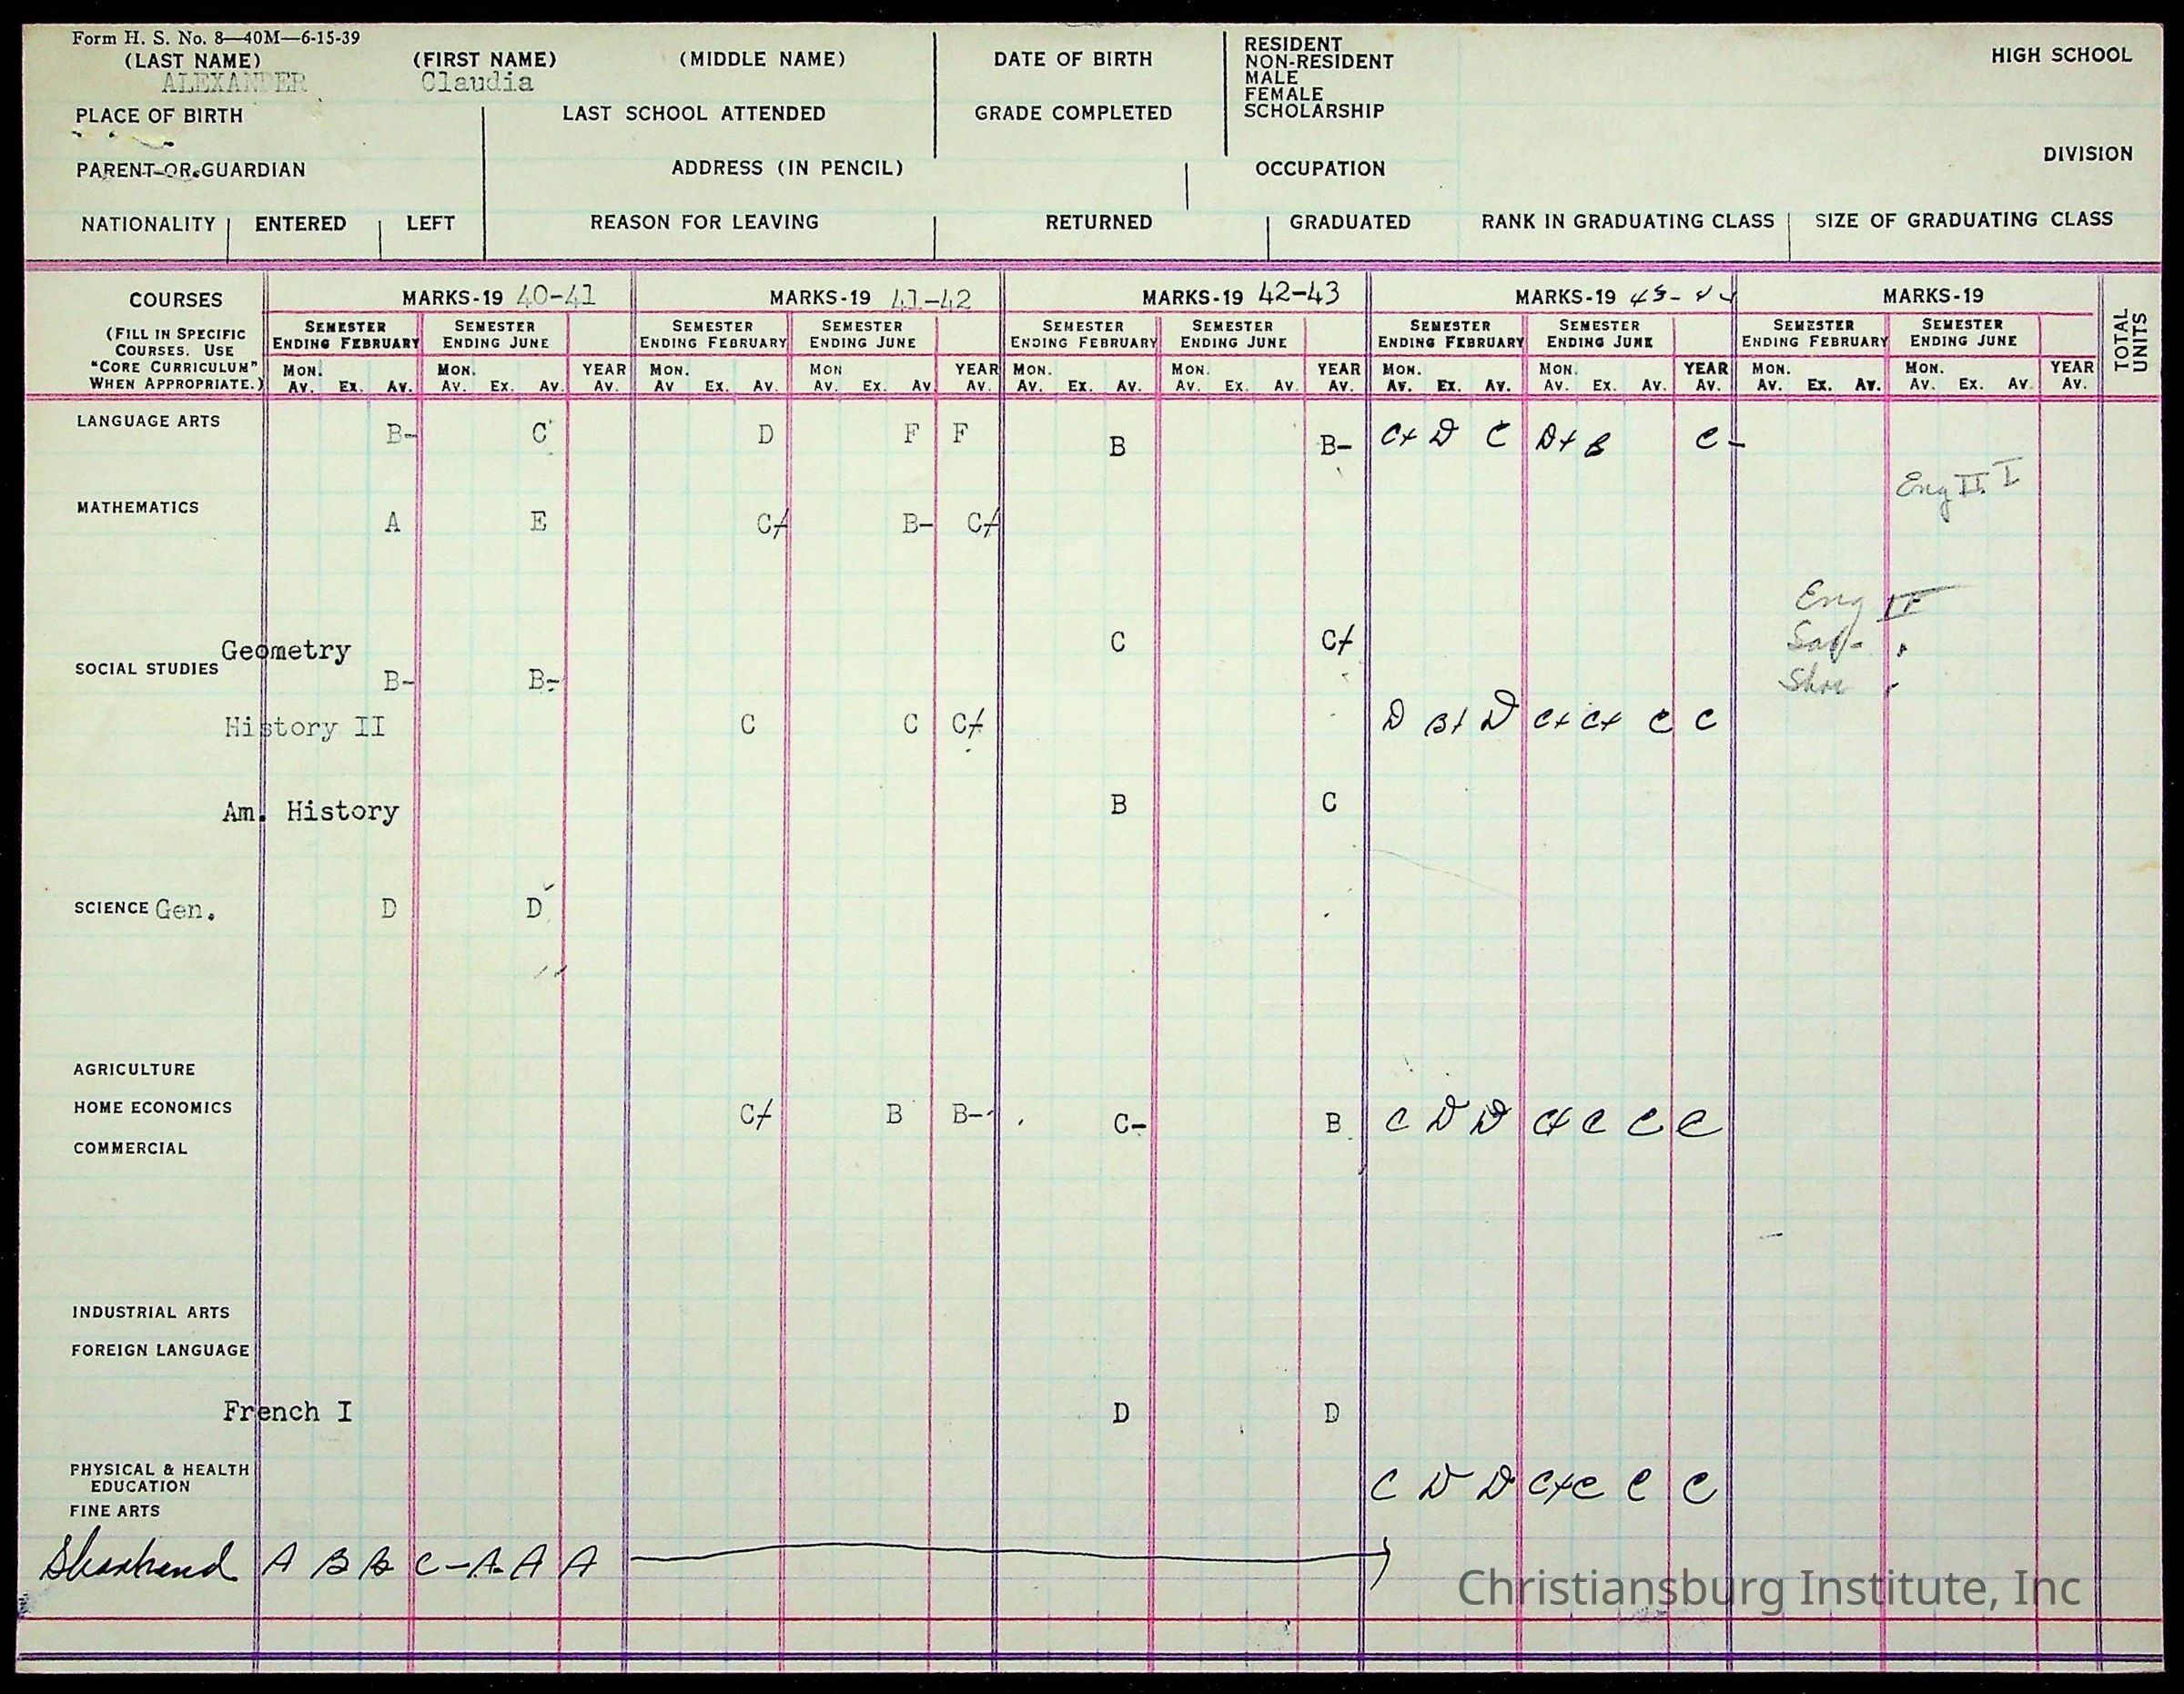 Form H. S. No. 8—40M—6-15-39
(LAST NAME) (FIRST NAME) (MIDDLE NAME) DATE OF BIRTH
ALEXANDER Claudia
RESIDENT
NON-RESIDENT
MALE
FEMALE
SCHOLARSHIP
HIGH SCHOOL
PLACE OF BIRTH LAST SCHOOL ATTENDED GRADE COMPLETED
DIVISION
PARENT OR GUARDIAN ADDRESS (IN PENCIL) OCCUPATION
NATIONALITY ENTERED LEFT REASON FOR LEAVING RETURNED GRADUATED RANK IN GRADUATING CLASS SIZE OF GRADUATING CLASS
COURSES MARKS-19 40-41 MARKS-19 41-42 MARKS-19 42-43 MARKS-19 43-44 MARKS-19
TOTAL UNITS
(FILL IN SPECIFIC
COURSES. USE
"CORE CURRICULUM"
WHEN APPROPRIATE.)
SEMESTER SEMESTER SEMESTER SEMESTER SEMESTER SEMESTER SEMESTER SEMESTER SEMESTER SEMESTER
ENDING FEBRUARY ENDING JUNE ENDING FEBRUARY ENDING JUNE ENDING FEBRUARY ENDING JUNE ENDING FEBRUARY ENDING JUNE ENDING FEBRUARY ENDING JUNE
MON. MON. YEAR MON. MON YEAR MON. MON. YEAR MON. MON. YEAR MON. MON. YEAR
AV. EX. AV. AV. EX. AV. AV. AV EX. AV. AV. EX. AV AV. AV. EX. AV. AV. EX. AV. AV. AV. EX. AV. AV. EX. AV. AV. AV. EX. AV. AV. EX. AV AV.
LANGUAGE ARTS B- C D F F B B- C+ D C D+ B C-
Eng II I
MATHEMATICS A E C+ B- C+
Eng II
Geometry C C+
SOCIAL STUDIES B- B-
History II C C C+ D B+ D C+ C+ C C
Am. History B C
SCIENCE Gen. D D
AGRICULTURE
HOME ECONOMICS C+ B B- C- B C D D C+ C C C
COMMERCIAL
INDUSTRIAL ARTS
FOREIGN LANGUAGE
French I D D
PHYSICAL & HEALTH
EDUCATION C D D C+ C C C
FINE ARTS
Shorthand A B B C- A A A
Christiansburg Institute, Inc